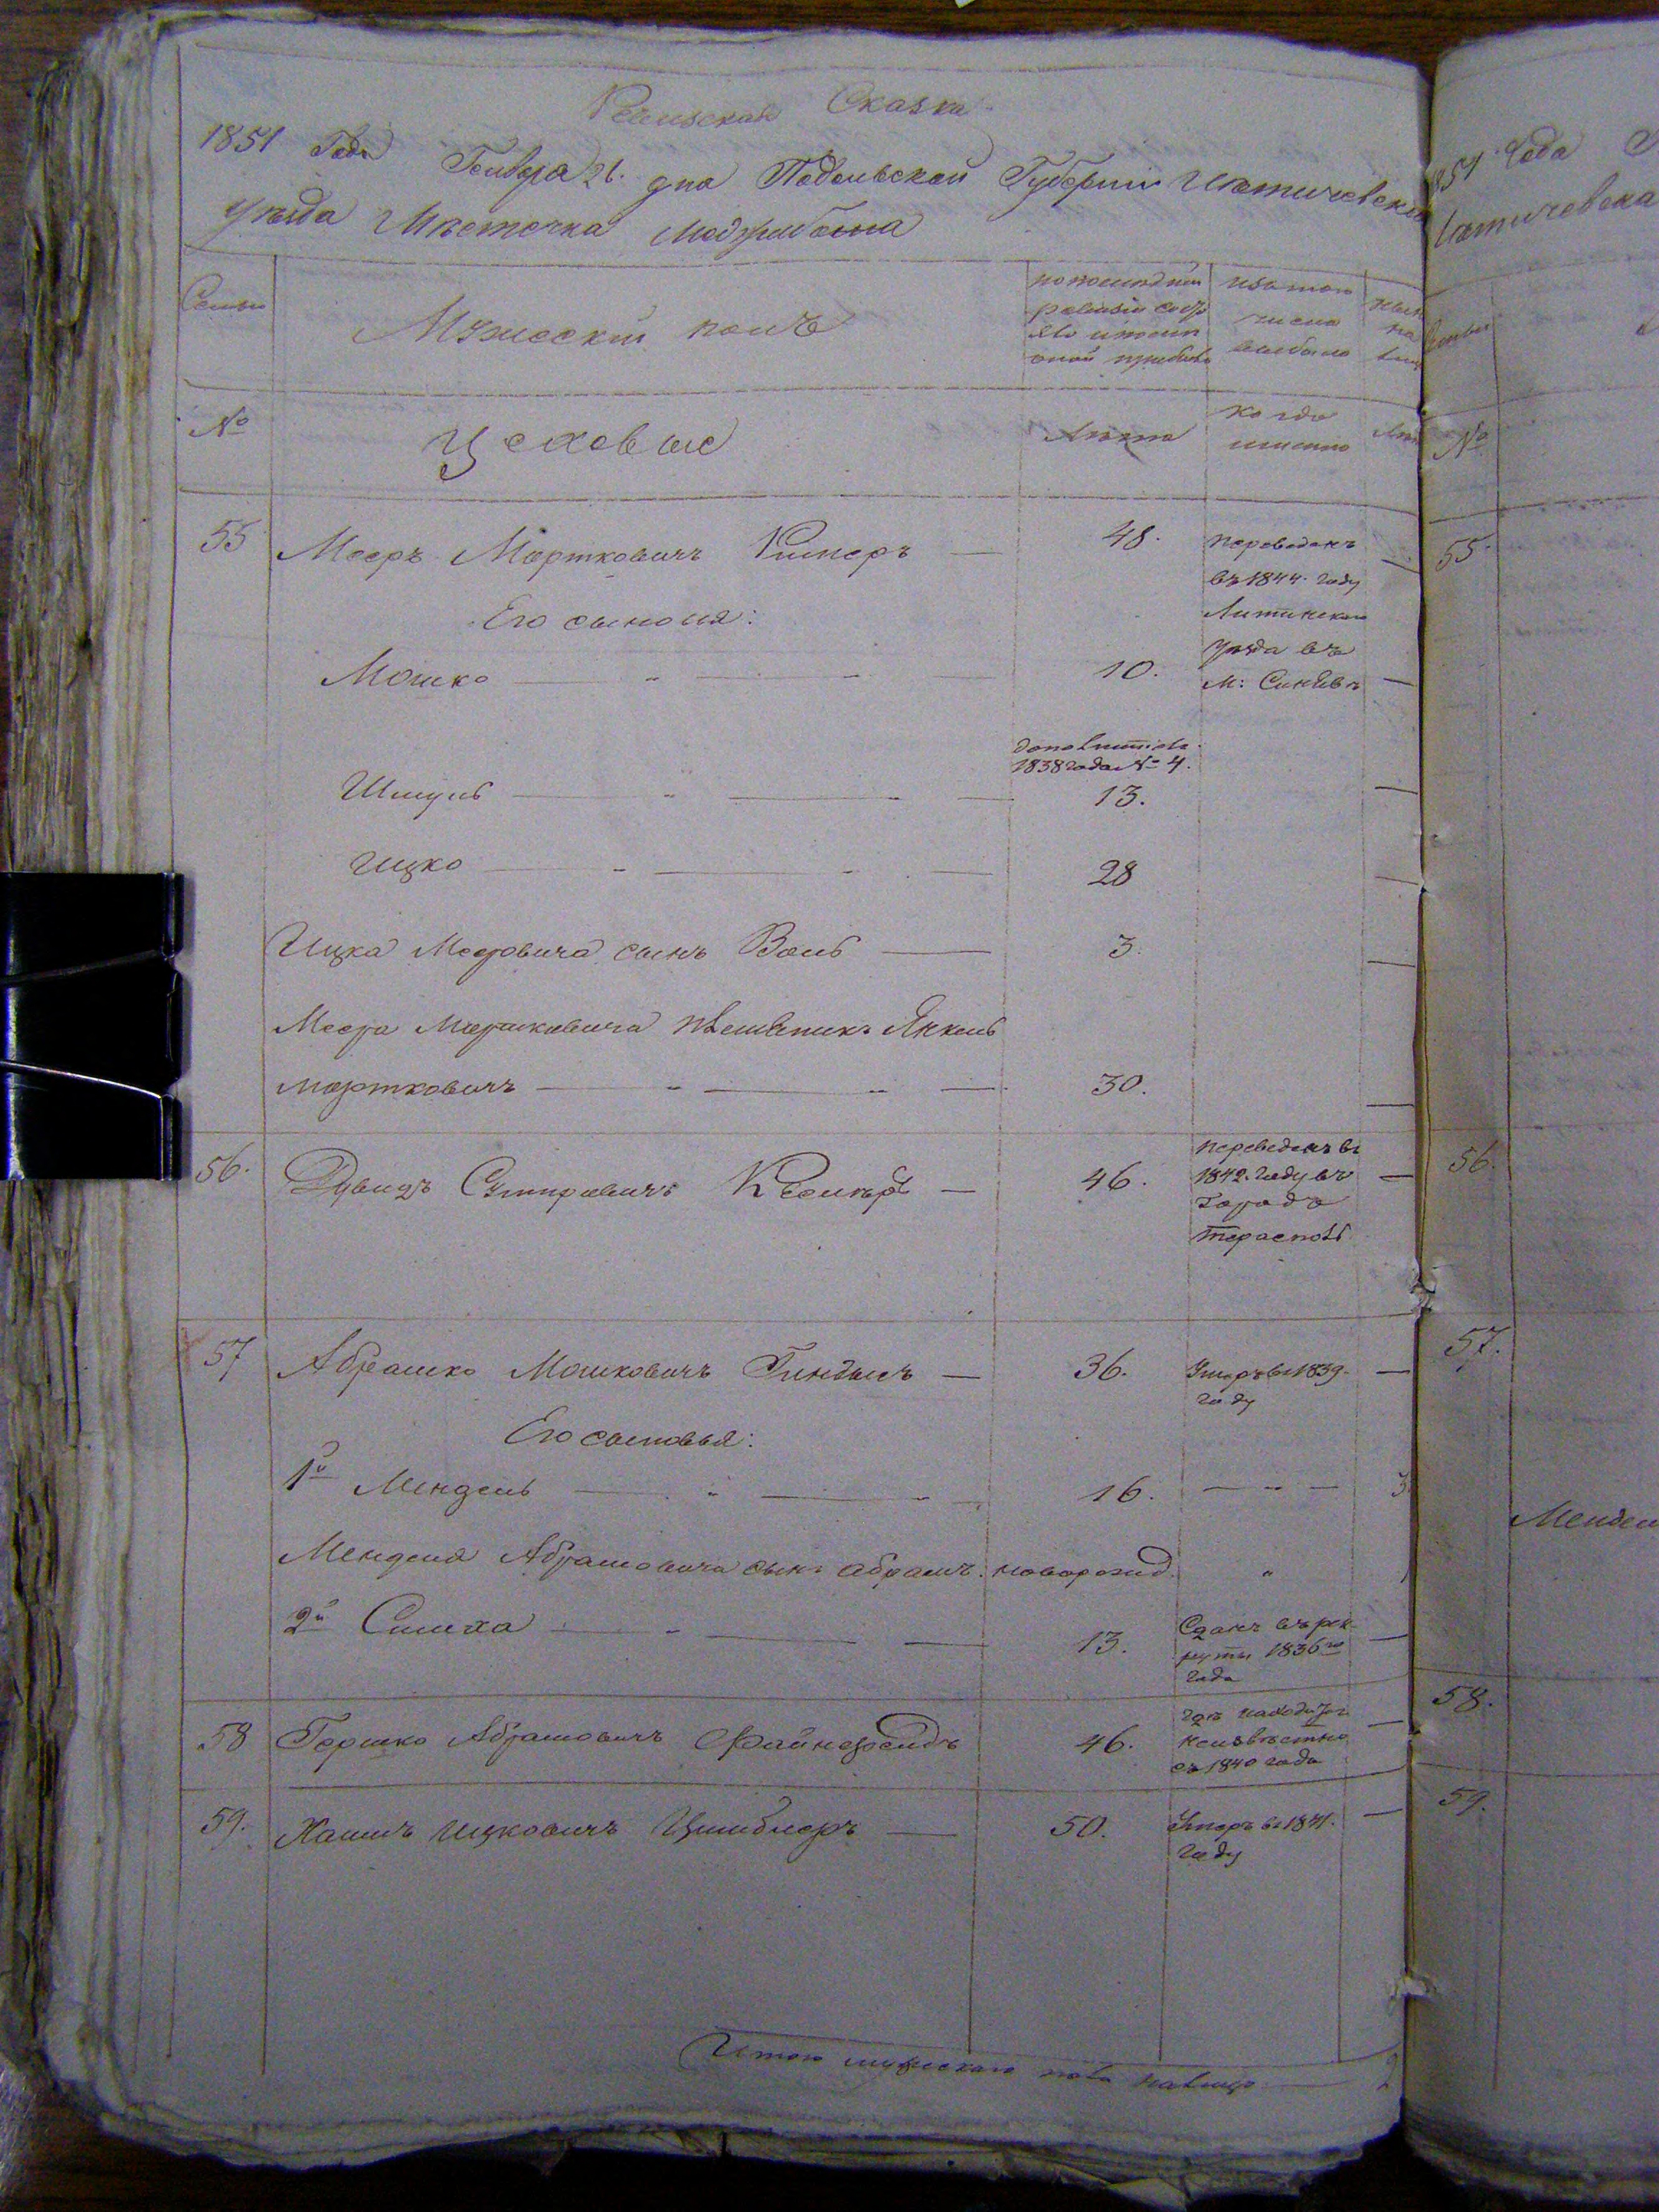 Ревизская Сказка
1851 Года Генваря 26. дня Подольской Губернии Летичевска
уезда Местечка Меджибожа
Семьи
Мужеский полъ
по последней ревизии состо
яло и после оной прибыло
изъ того числа выбыло
№
Цеховые
Лета
когда именно
55
Мееръ Мортковичъ Кимеръ — 48.
переведенъ
въ 1844. году
Литинскаго
уезда въ
м: Синяву
Его сыновья:
Мошко 10.
дополнител.
1838 года № 4.
Шмуль 13.
Ицко 28
Ицка Мееровича сынъ Волъ 3.
Меера Мортковича племеникъ Янкель
Мортковичъ 30.
56.
Дувидъ 46.
переведенъ въ
1842. году въ
городъ
Тераспол
57
Абрашко Мошковичъ 36.
Умеръ въ 1839.
году
Его сыновья:
1й Мендель 16.
Менделя Абрамовича сынъ Абрамъ новорожд.
2й Симха 13.
Сданъ въ рек
руты 1836го
года
58
Гершко Абрамовичъ Файнзейдъ 46.
где находится
неизвестно
съ 1840 года
59.
Хаимъ Ицковичъ Цимблеръ 50.
Умеръ въ 1841.
году
Итого мужескаго пола налицо
1851 года
Летичевска
№
55.
56.
57.
Мендел
58.
59.